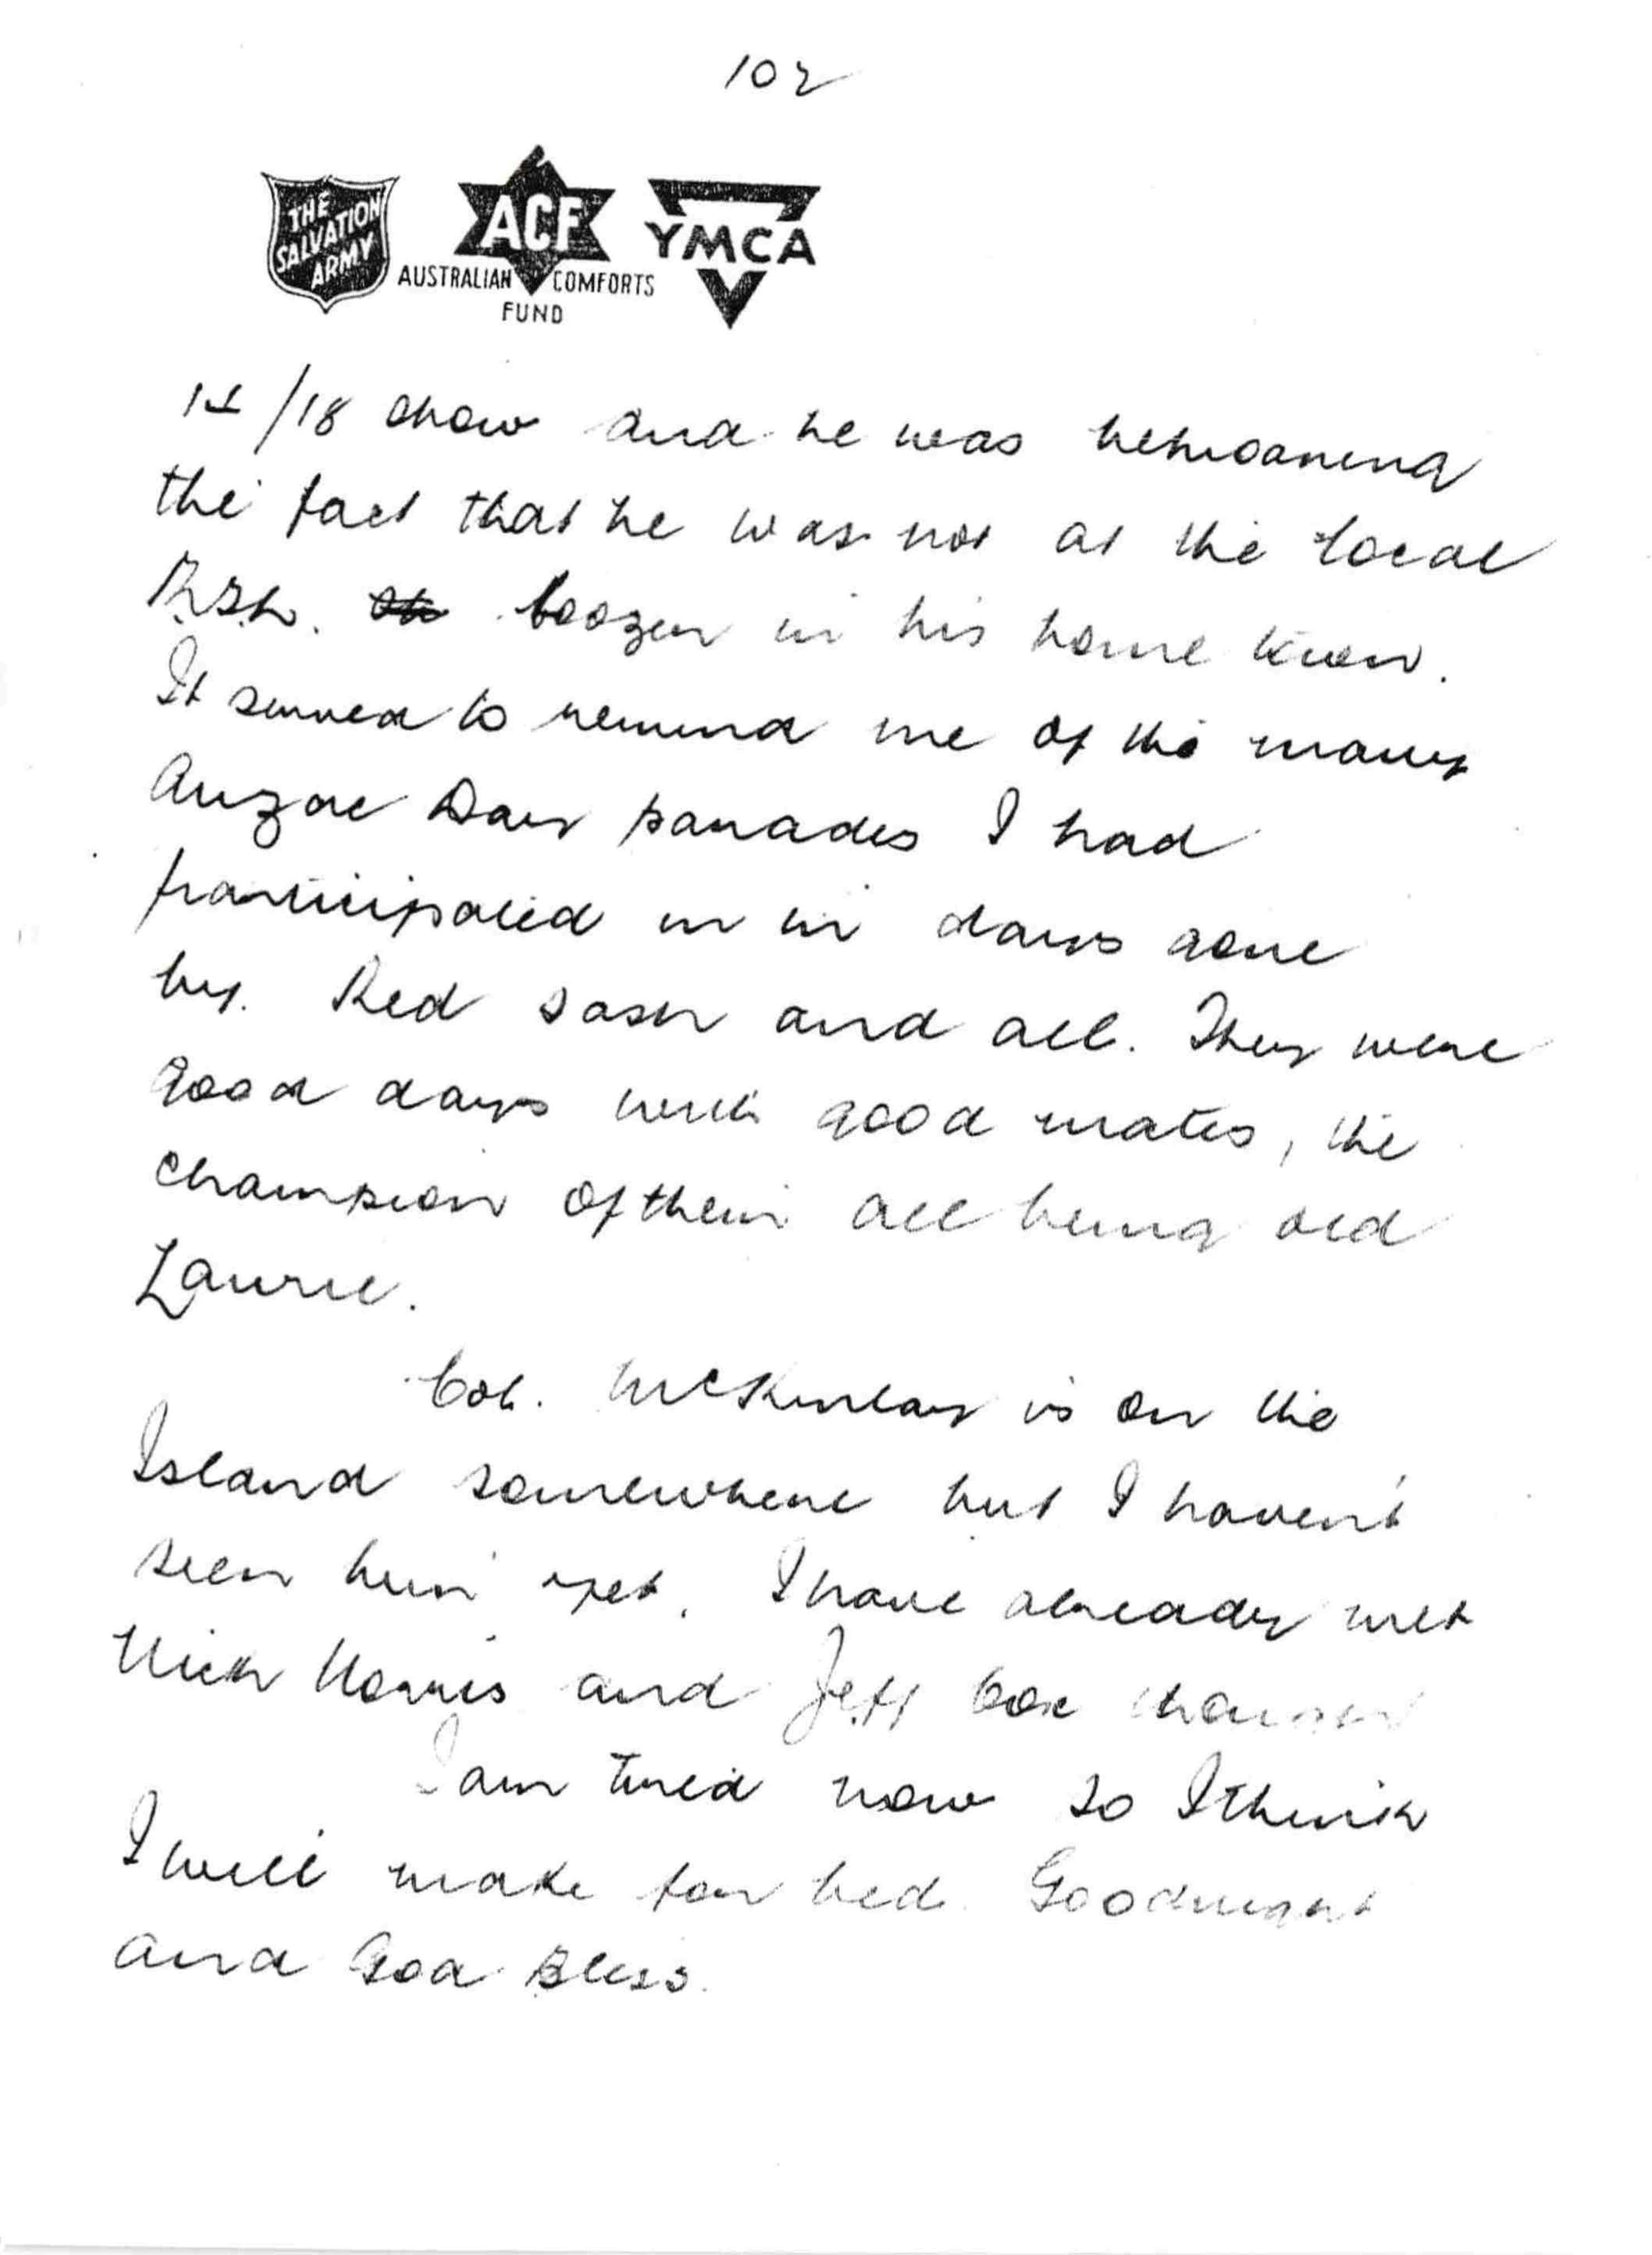 102
THE
SALVATION
ARMY
ACF
AUSTRALIAN COMFORTS
FUND
YMCA
1st/18 show and he was bemoaning
the fact that he was not at the local
R.S.L. boozer in his home town.
It served to remind me of the many
Anzac Day parades I had
participated in in days gone
by. Red sash and all. They were
good days with good mates, the
champion of them all being old
Laurie.
Col. McKinlay is on the
Island somewhere but I haven't
seen him yet. I have already met
Nick Norris and Jeff Cox
I am tired now so I think
I will make for bed. Goodnight
and God Bless.